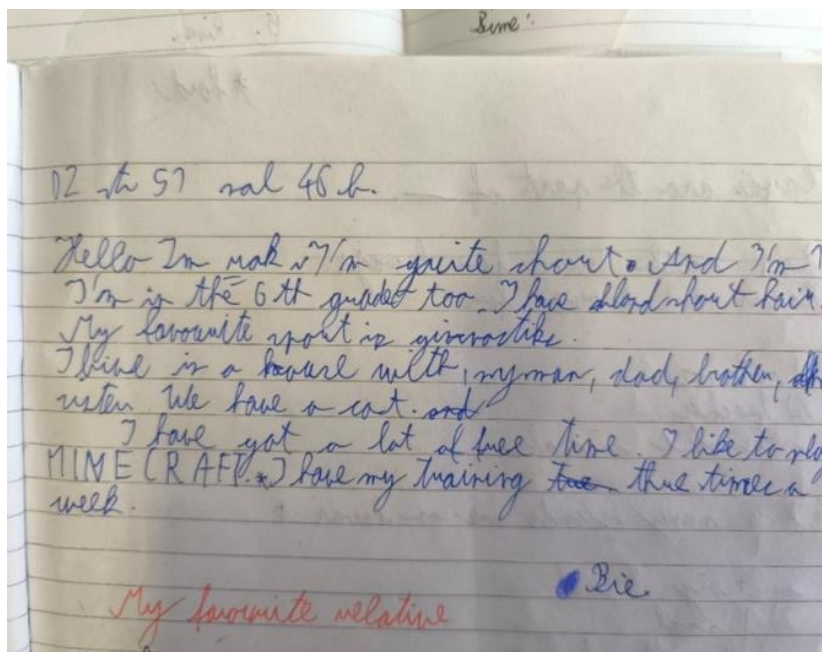 Bime!
DZ str 57 nal 46 b.
Hello Im mak I'm quite short. And I'm
I'm in the 6 th grader too. I have blond short hair.
My favourite sport is
I live in a house with, my mam, dad, brother,
sister We have a cat. and
I have got a lot of free time. I like to play
MINECRAFT. * I have my training thre times a
week.
Bie.
My favourite relative